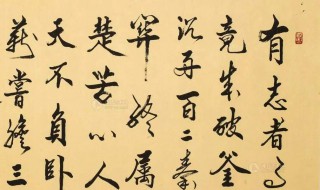 有志者事
竟成破釜
沉舟百二秦
关终属
楚苦心人
天不负卧
薪尝胆三